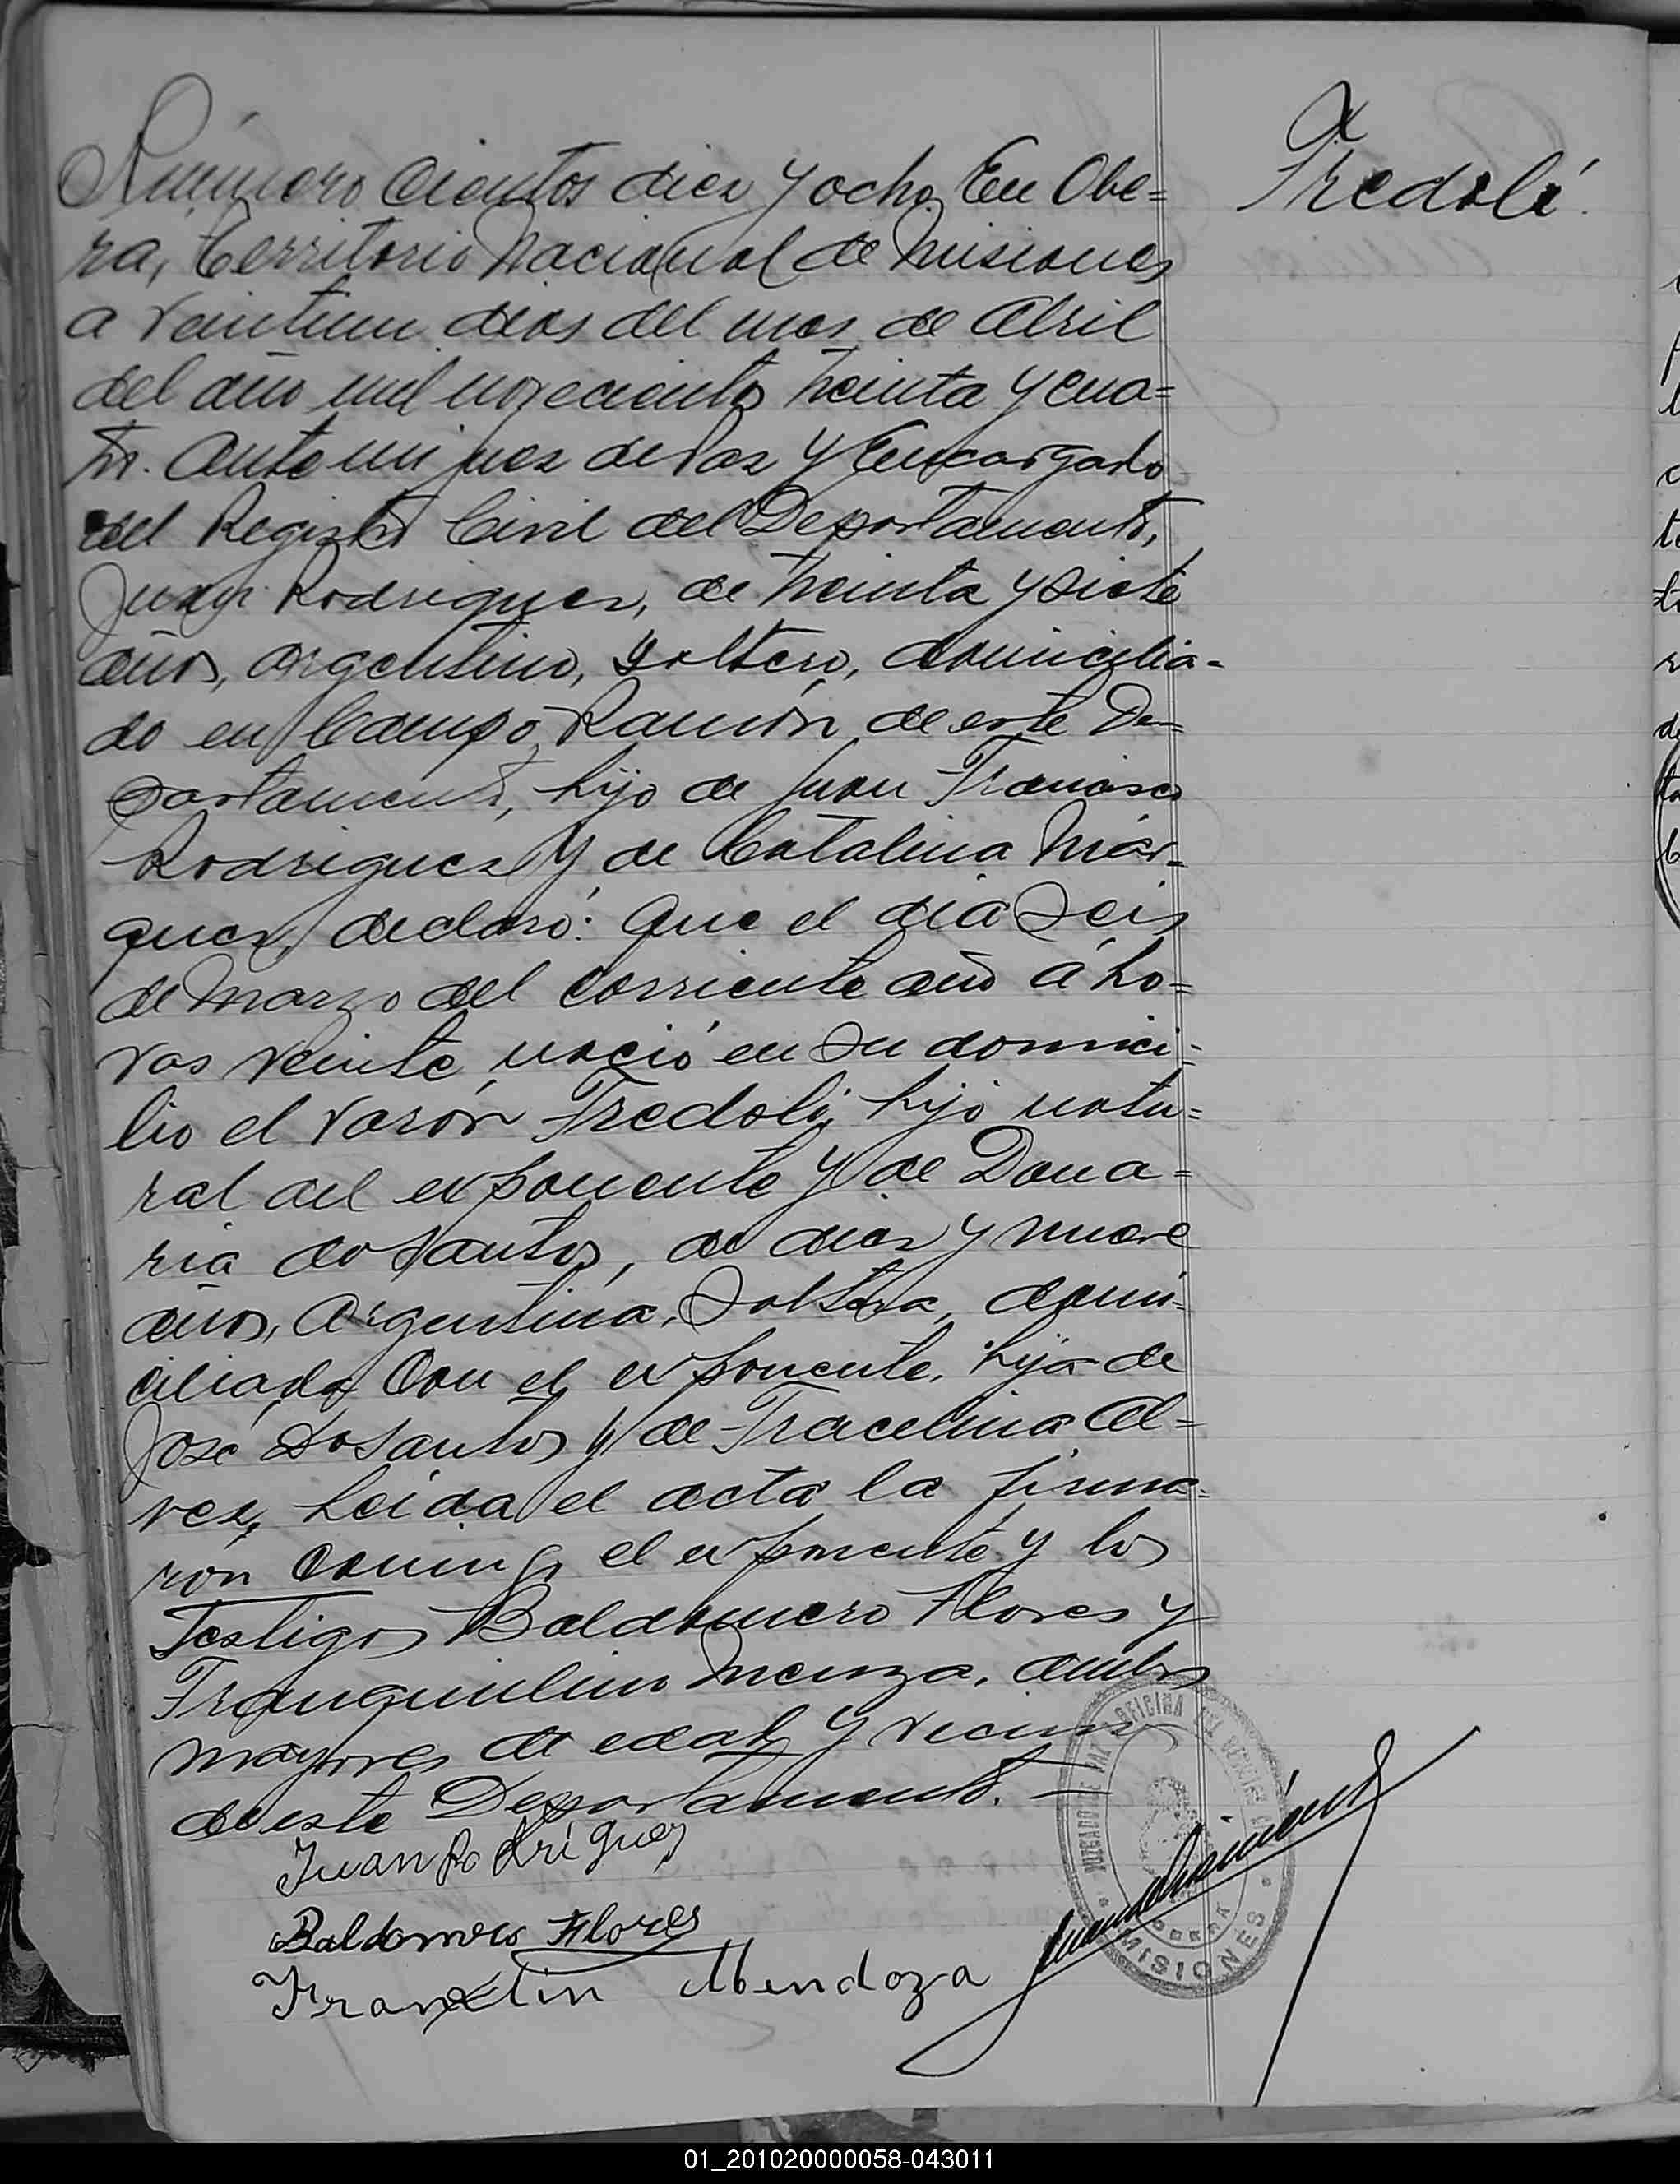 Número Cientos diez y ocho. En Obe=
ra, Territorio Nacional de Misiones
a veintiun dias del mes de Abril
del año mil novecientos treinta y cua=
tro. Ante mi juez de Paz y Encargado
del Registro Civil del Departamento,
Juan Rodriguez, de treinta y siete
años, argentino, soltero, domicilia-
do en Campo Ramón de este De=
partamento, hijo de Juan Francisco
Rodriguez y de Catalina Már=
quez, declaró: Que el dia Seis
de Marzo del corriente año á ho=
ras veinte, nació en su domici=
lio el varón Fredoli, hijo natu=
ral del exponente y de Dona=
ria do Santos, de diez y nueve
años, Argentina, Soltera, domi=
ciliada Con el exponente, hija de
José DoSantos y de Tracelina Al=
vez, Leida el acta la firma=
rón Conmigo el exponente y los
Testigos Baldomero Flores y
Tranquilino Menza, ambos
mayores de edad y vecinos
de este Departamento.
Juan Rodriguez
Baldomero Flores
Mendoza
Fredoli
OFICINA DEL REGISTRO
JUZGADO DE PAZ
OBERA
MISIONES
01_201020000058-043011